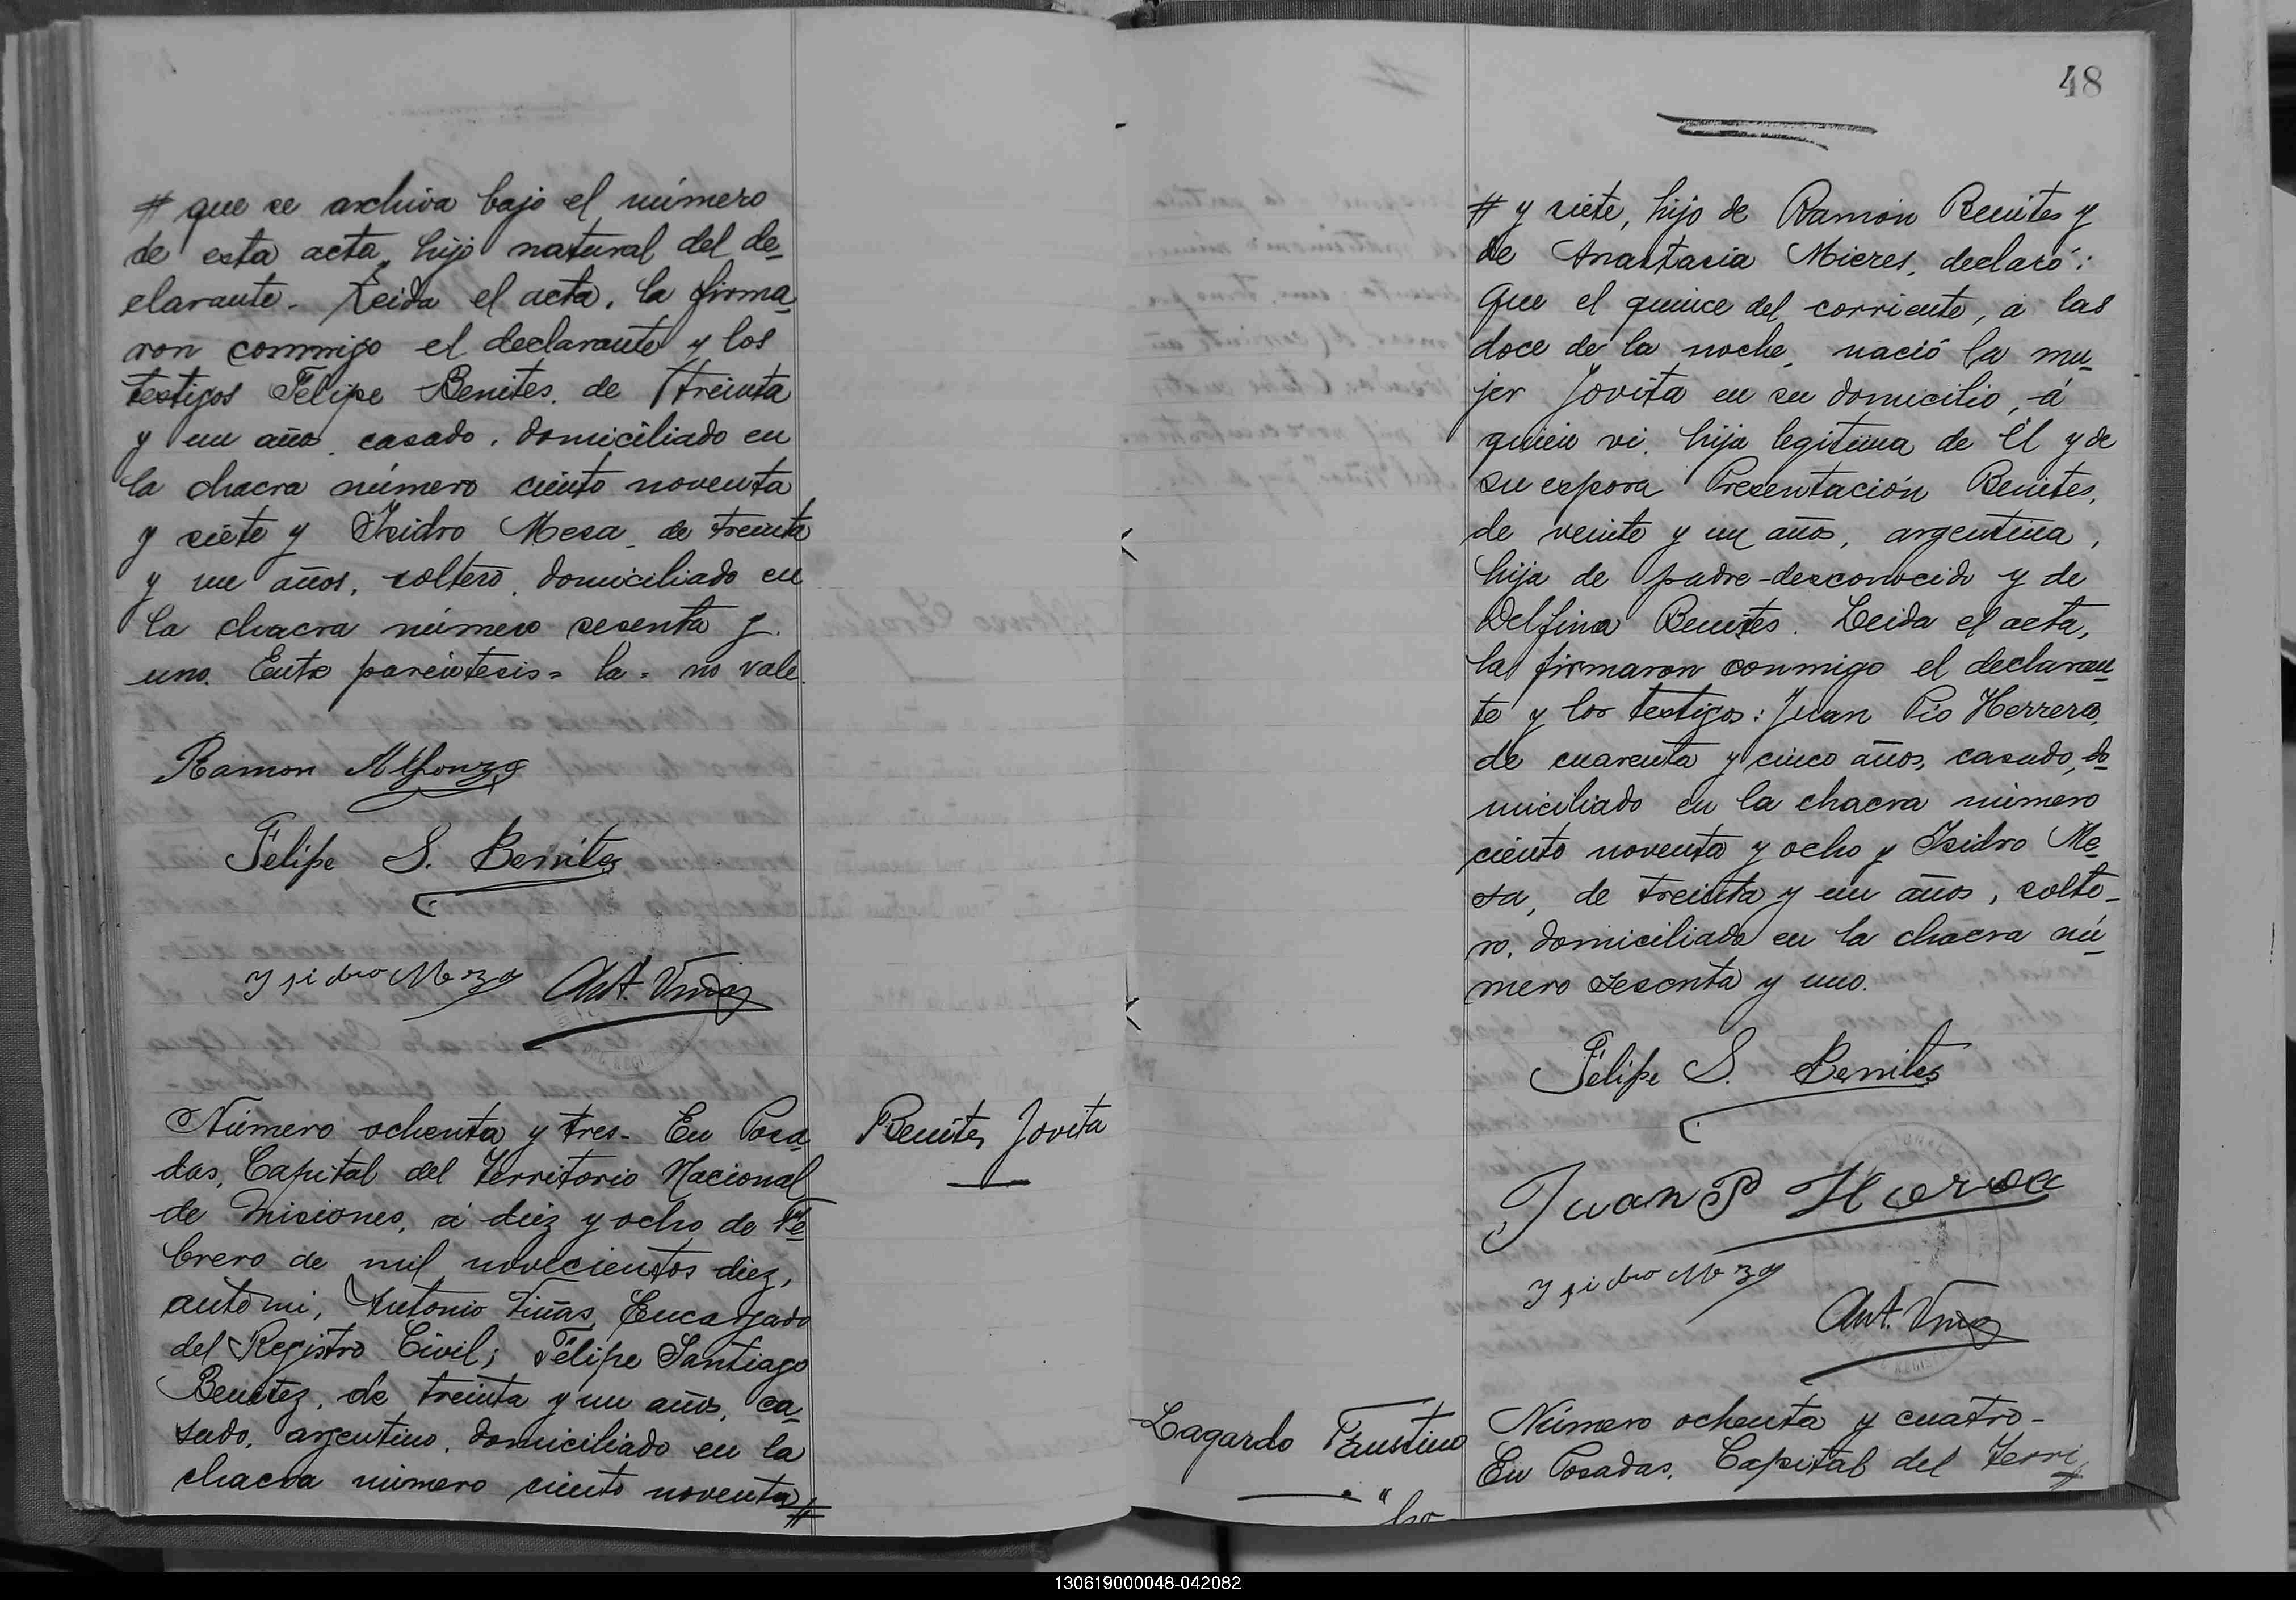 # que se archiva bajo el número
de esta acta, hijo natural del de-
clarante. Leida el acta, la firma-
ron conmigo el declarante y los
testigos Felipe Benites, de treinta
y un años, casado, domiciliado en
la chacra número ciento noventa
y siete y Isidro Mesa, de treinta
y un años, soltero, domiciliado en
la chacra número sesenta y
uno. Entre paréntesis = la = no vale.
Ramon Alfonzo
Felipe S. Benites
Ysidro Meza Ant. Viñas
Número ochenta y tres- En Posa-
das, Capital del Territorio Nacional
de Misiones, á diez y ocho de Fe-
brero de mil novecientos diez,
ante mi, Antonio Viñas, Encargado
del Registro Civil; Felipe Santiago
Benitez, de treinta y un años, ca-
sado, argentino, domiciliado en la
chacra número ciento noventa #
Benites Jovita
48
# y siete, hijo de Ramón Benites y
de Anastasia Mieres, declaró:
Que el quince del corriente, á las
doce de la noche, nació la mu-
jer Jovita en su domicilio, á
quien vi, hija legitima de él y de
su esposa Presentación Benites,
de veinte y un años, argentina,
hija de padre desconocido y de
Delfina Benites. Leida el acta,
la firmaron conmigo el declaran-
te y los testigos: Juan Pio Herrera,
de cuarenta y cinco años, casado, do-
miciliado en la chacra número
ciento noventa y ocho y Isidro Me-
sa, de treinta y un años, solte-
ro, domiciliado en la chacra nú-
mero sesenta y uno.
Felipe S. Benites
Juan P
Ysidro Meza
Ant. Viñas
Lagardo Faustino
Número ochenta y cuatro-
En Posadas, Capital del Terri-
130619000048-042082